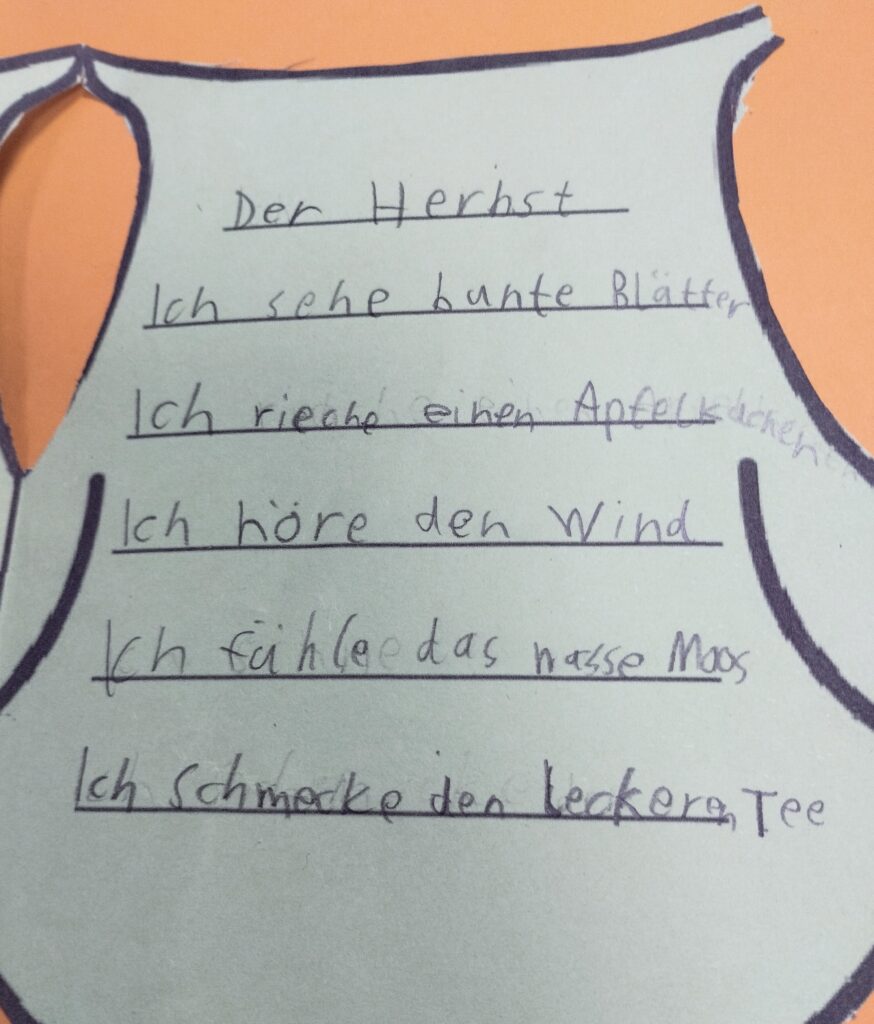 Der Herbst
Ich sehe bunte Blätter
Ich rieche einen Apfelkuchen
Ich höre den Wind
Ich fühle das nasse Moos
Ich schmecke den leckeren Tee